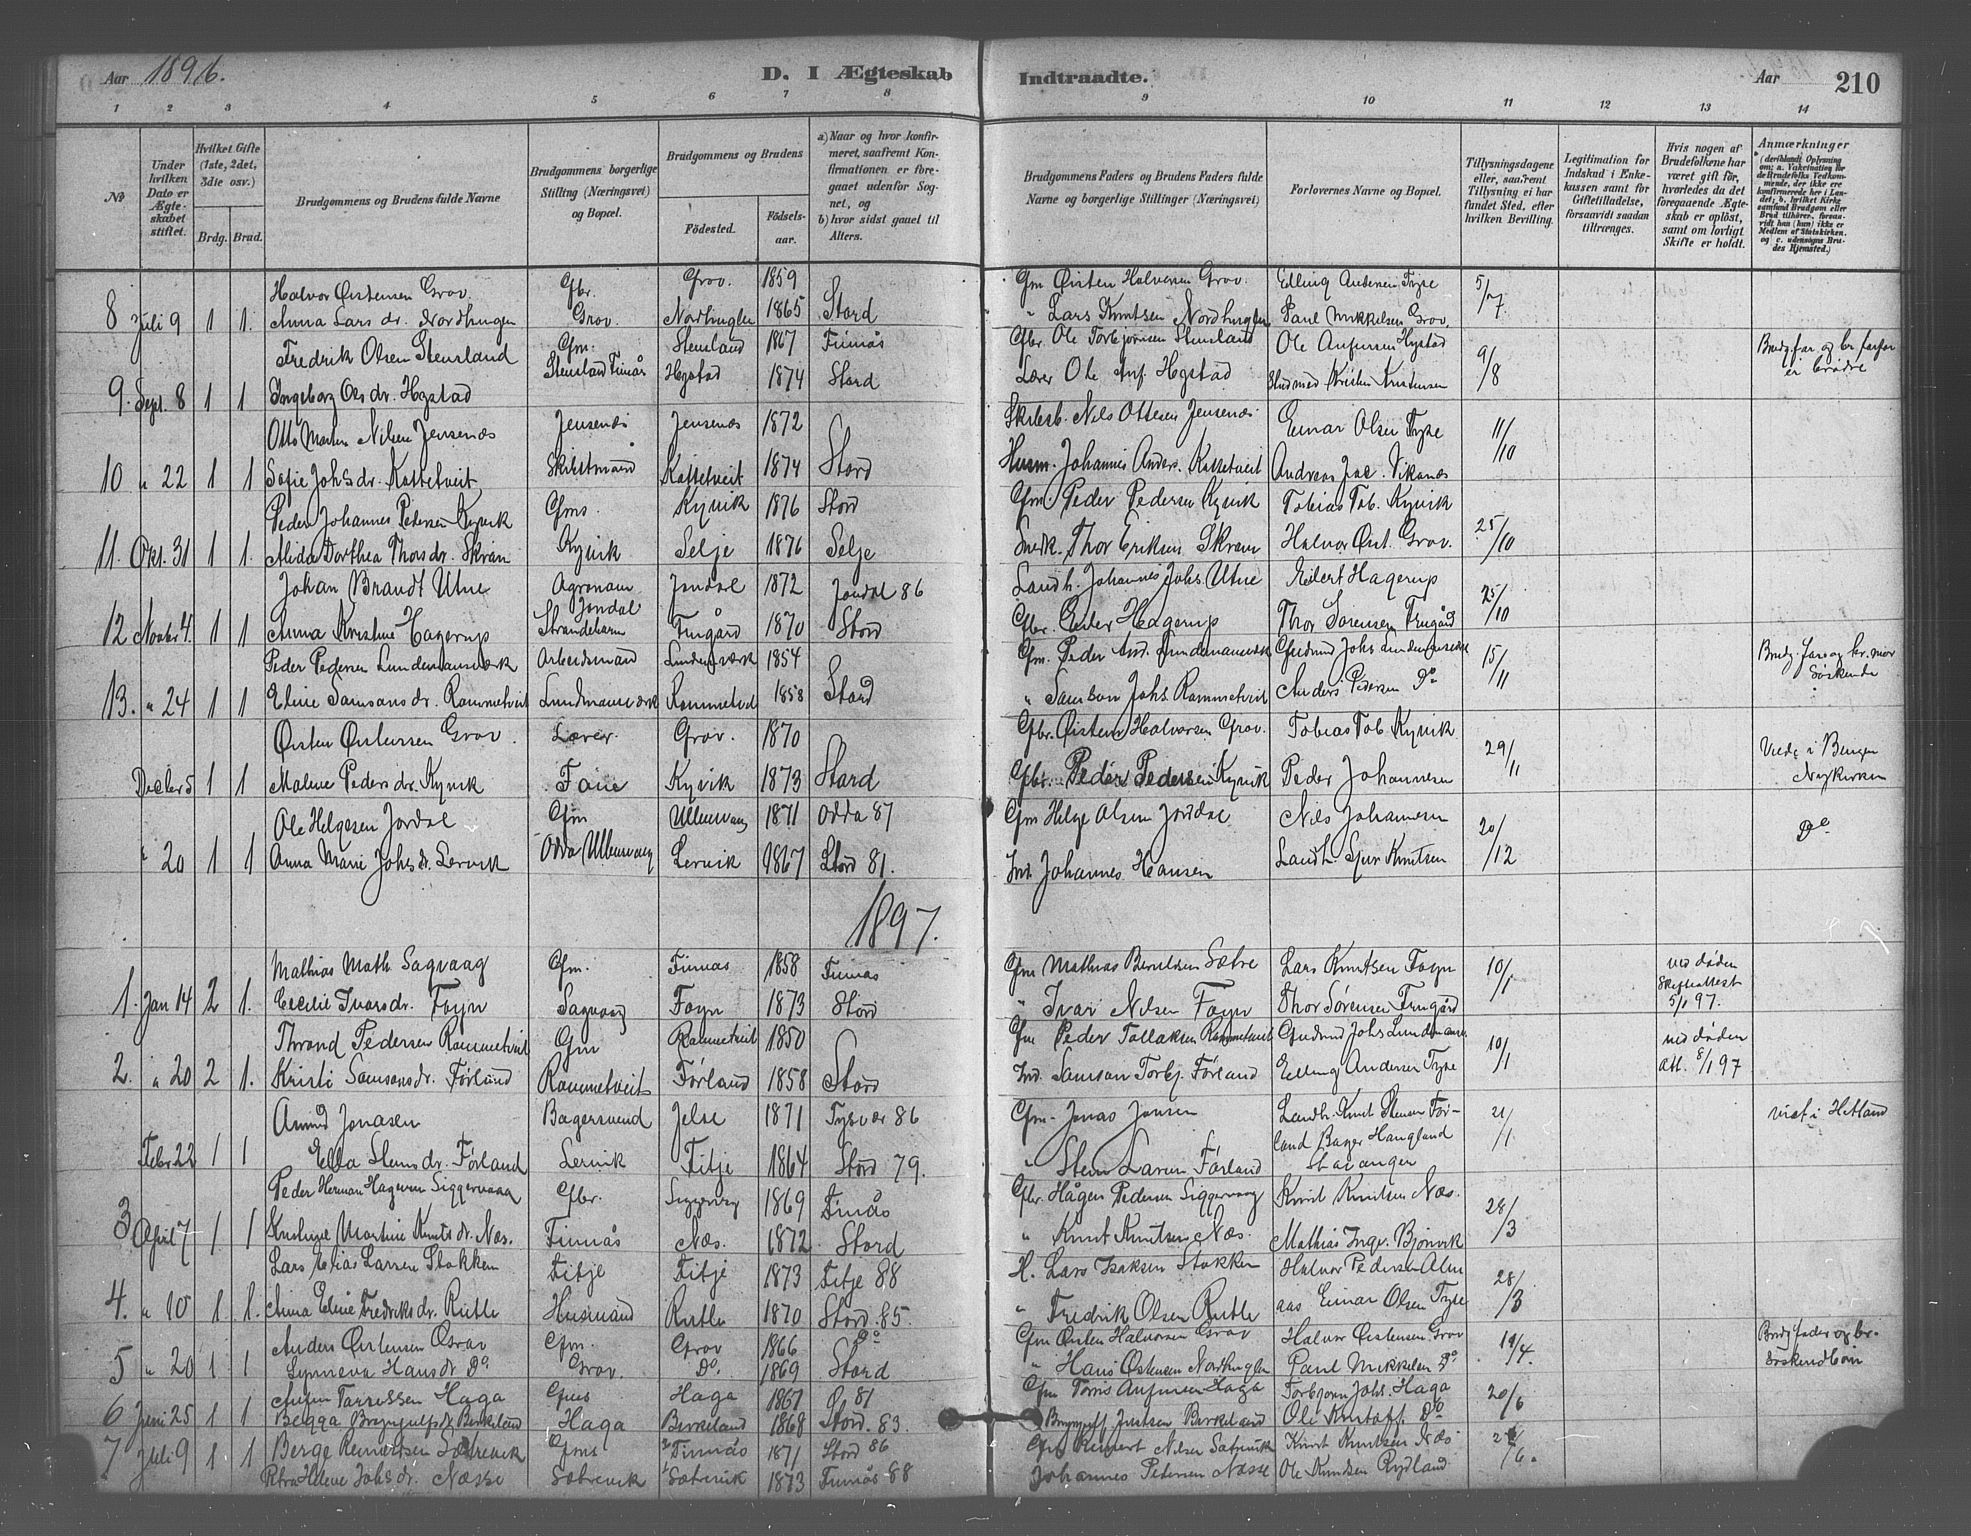 Aar 1896. D. I Ægteskab Indtraadte. Aar 210
1 2 3 4 5 6 7 8 9 10 11 12 13 14
№
Under hvilken Dato er Ægteskabet stiftet.
Hvilket Gifte (1ste, 2det, 3die osv.)
Brdg. Brud.
Brudgommens og Brudens fulde Navne
Brudgommens borgerlige Stilling (Næringsvei) og Bopæl.
Brudgommens og Brudens
Fødested.
Fødselsaar.
a) Naar og hvor konfirmeret, saafremt Konfirmationen er foregaaet udenfor Sognet, og
b) hvor sidst gaaet til Alters.
Brudgommens Faders og Brudens Faders fulde Navne og borgerlige Stillinger (Næringsvei)
Forlovernes Navne og Bopæl.
Tillysningsdagene eller, saafremt Tillysning ei har fundet Sted, efter hvilken Bevilling.
Legitimation for Indskud i Enkekassen samt for Giftetilladelse, forsaavidt saadan tiltrænges.
Hvis nogen af Brudefolkene har været gift før, hvorledes da det foregaaende Ægteskab er opløst, samt om lovligt Skifte er holdt.
Anmærkninger
(deriblandt Oplysning om: a. Vakcination for de Brudefolks Vedkommende, der ikke ere konfirmerede her i Landet; b. hvilket Kirkesamfund Brudgom eller Brud tilhører, forsaavidt han (hun) ikke er Medlem af Statskirken, og c. udensogns Brudes Hjemsted.)
Halvor Øistensen Grov. Gbr. Grov. 1859 Gm Øisten Halvorsen Grov. Elling Andersen Tyse 5/7
8 Juli 9 1 1. Anna Lars dr. Nordhuglen Grov. Nordhuglen 1865 Stord " Lars Knutsen Nordhuglen Paul Mikkelsen Grov.
Fredrik Olsen Stensland Gm. Stensland 1867 Finnås Gbr. Ole Torbjørnsen Stensland Ole Anfinsen Hystad 9/8 Brudg. far og br. farfar er brødre
9. Sept. 8 1 1 Ingeborg Ols dr. Hystad Stensland Finnås Hystad 1874 Stord Lærer Ole Anf. Hystad Kristen Kristensen
Otto Martin Nilsen Jensenæs Jensenæs Jensenæs 1872 Skibsb. Nils Ottesen Jensenæs Einar Olsen Tyse 11/10
10 " 22 1 1 Sofie Johs dr. Kattetveit Kattetveit 1874 Stord Husm. Johannes Anders. Kattetveit Andreas Jac. Vikanes
Peder Johannes Pedersen Kyvik Gms. Kyvik 1876 Stord Gm. Peder Pedersen Kyvik Tobias Tob. Kyvik 25/10
11. Okt. 31 1 1. Alida Dorthea Thors dr. Skram Kyvik Selje 1876 Selje Snedk. Thor Eriksen Skram Halvor Øist. Grov.
Johan Brandt Utne Agronom Jondal Jondal 1872 Jondal 86 Landh. Johannes Johs Utne Eilert Hagerup 25/10
12 Novbr 4. 1 1 Anna Kristine Hagerup Strandebarm Frugård 1870 Stord Gbr. Hagerup Thor Sørensen Frugård
Peder Pedersen Lundemannsværk Arbeidsmand 1854 Gm. Peder And. Lundemannsværk Gudmund Johs Lundemannsværk 15/11 Brudg. far og br. mor Søskende
13. " 24 1 1 Eline Samsons dr. Rommetveit Lundmannsværk Rommetveit 1858 Stord " Samson Johs Rommetveit Anders Pedersen Do
Øisten Øistensen Grov. Lærer. Grov. 1870 Gbr. Øisten Halvorsen Grov. Tobias Tob. Kyvik 29/11 Viede i Bergen Nykirken
Decbr 5 1 1 Malene Peders dr. Kyvik Kyvik 1873 Stord Gbr. Peder Pedersen Kyvik Peder Johannesen
Ole Helgesen Jordal Gm Ullensvang 1871 Odda 87 Gm Helge Olsen Jordal Nils Johannesen 20/12 Do
" 20 1 1 Anna Marie Johs dr. Lervik Odda Ullensvang Lervik 1867 Stord 81. Ind. Johannes Hansen Landh. Sjur Knutsen
1897.
Mathias Math. Sagvaag Gm. Finnås 1858 Finnås Gm Mathias Berntsen Sætre Lars Knutsen Føyn 10/1 ved døden Skifteattest 5/1 97.
1. Jan 14 2 1. Cecilie Ivars dr. Føyn Sagvaag Føyn 1873 Stord " Ivar Nilsen Føyn Thor Sørensen Frugård
Thrond Pedersen Rommetveit Gm Rommetveit 1850 Gm Peder Tollaksen Rommetveit Gudmund Johs Lundemanns 10/1 ved døden Att. 8/1 97
2. " 20 2 1. Kristi Samsons dr. Førland Rommetveit Førland 1858 Stord Ind. Samson Torbj. Førland Elling Andersen Tyse
Amund Jonasen Bagersvend Jelse 1871 Tysvær 86 Gm. Jonas Jonsen Landh. Knut Stenson Førland Bager Haugland Stavanger 21/1 viet i Hetland
Febr 22 1 1 Ella Stens dr. Førland Lervik Fitje 1864 Stord 79. " Sten Larsen Førland
Peder Herman Hagesen Siggervaag Gbr. Siggervåg 1869 Finnås Gbr. Hågen Pedersen Siggervaag Knut Knutsen Næs. 28/3
3 April 7 1 1 Kristine Martine Knuts dr. Næs. Finnås Næs. 1872 Stord " Knut Knutsen Næs. Mathias Ingv. Bjønvik
Lars Elias Larsen Stokken Fitje Fitje 1873 Fitje 88 H. Lars Isaksen Stokken Halvor Pedersen Almaas 28/3
4. " 10 1 1. Anna Eline Fredriks dr. Rutle Husmand Rutle 1870 Stord. 85. " Fredrik Olsen Rutle Einar Olsen Tyse
Anders Østensen Grov Gm. Grov 1866 Do Gm Østen Halvorsen Grov Halvor Østensen Grov 19/4. Brudg. fader og br. søskendbørn
5 " 20 1 1 Synneva Hans dr Do Grov. Do. 1869 Stord " Hans Østensen Nordhuglen Paul Mikkelsen Do
Anfin Torrissen Haga Gms Haga 1867 81 Gm Torris Anfinsen Haga Torbjørn Johs. Haga 20/6
6 Juni 25 1 1 Begga Brynjulfs dr Birkeland Haga Birkeland 1868 Stord. 83. " Brynjulf Justsen Birkeland Ole Kristoff. Do
7 Juli 9 1 1 Berge Reinertsen Sætrevik Gms Finnås 1871 Stord 86 Gm Reinert Nilsen Sætrevik Knut Knutsen Næs
Helene Johs dr. Næsse Sætrevik Sætrevik 1873 Finnås 88 Johannes Petersen Næsse Ole Knudsen Rydland